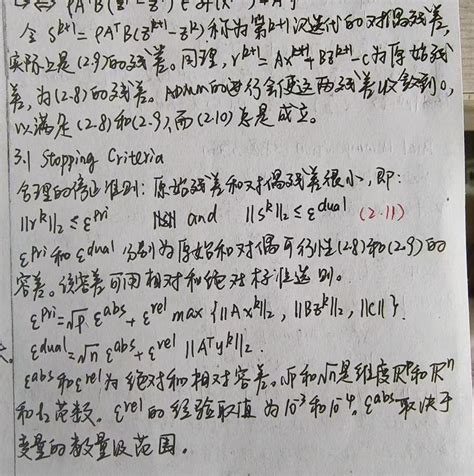 ⇐⇒ ρAᵀB(z^{k+1} - z^k) ∈ ∂f(x^{k+1}) + Aᵀy^{k+1}
令 s^{k+1} = ρAᵀB(z^{k+1}-z^k) 称为第k+1次迭代的对偶残差,
实际上是(2.9)的残差。同理, r^{k+1} = Ax^{k+1} + Bz^{k+1} - c为原始残
差, 为(2.8)的残差。ADMM的进行会使这两残差收敛到0,
以满足(2.8)和(2.9), 而(2.10)总是成立。
3.1 Stopping Criteria
合理的停止准则: 原始残差和对偶残差很小, 即:
||r^k||₂ ≤ ε^{pri} and ||s^k||₂ ≤ ε^{dual} (2.11)
ε^{pri} 和 ε^{dual} 分别为原始和对偶可行性(2.8)和(2.9)的
容差。该容差可用相对和绝对标准选则。
ε^{pri} = √p ε^{abs} + ε^{rel} max {||Ax^k||₂, ||Bz^k||₂, ||c||}.
ε^{dual} = √n ε^{abs} + ε^{rel} ||Aᵀy^k||₂.
ε^{abs}和ε^{rel}为绝对和相对容差。√p和√n是维度R^p和R^n
和l₂范数。ε^{rel}的经验取值为10⁻³和10⁻⁴。ε^{abs}取决于
变量的数量及范围。